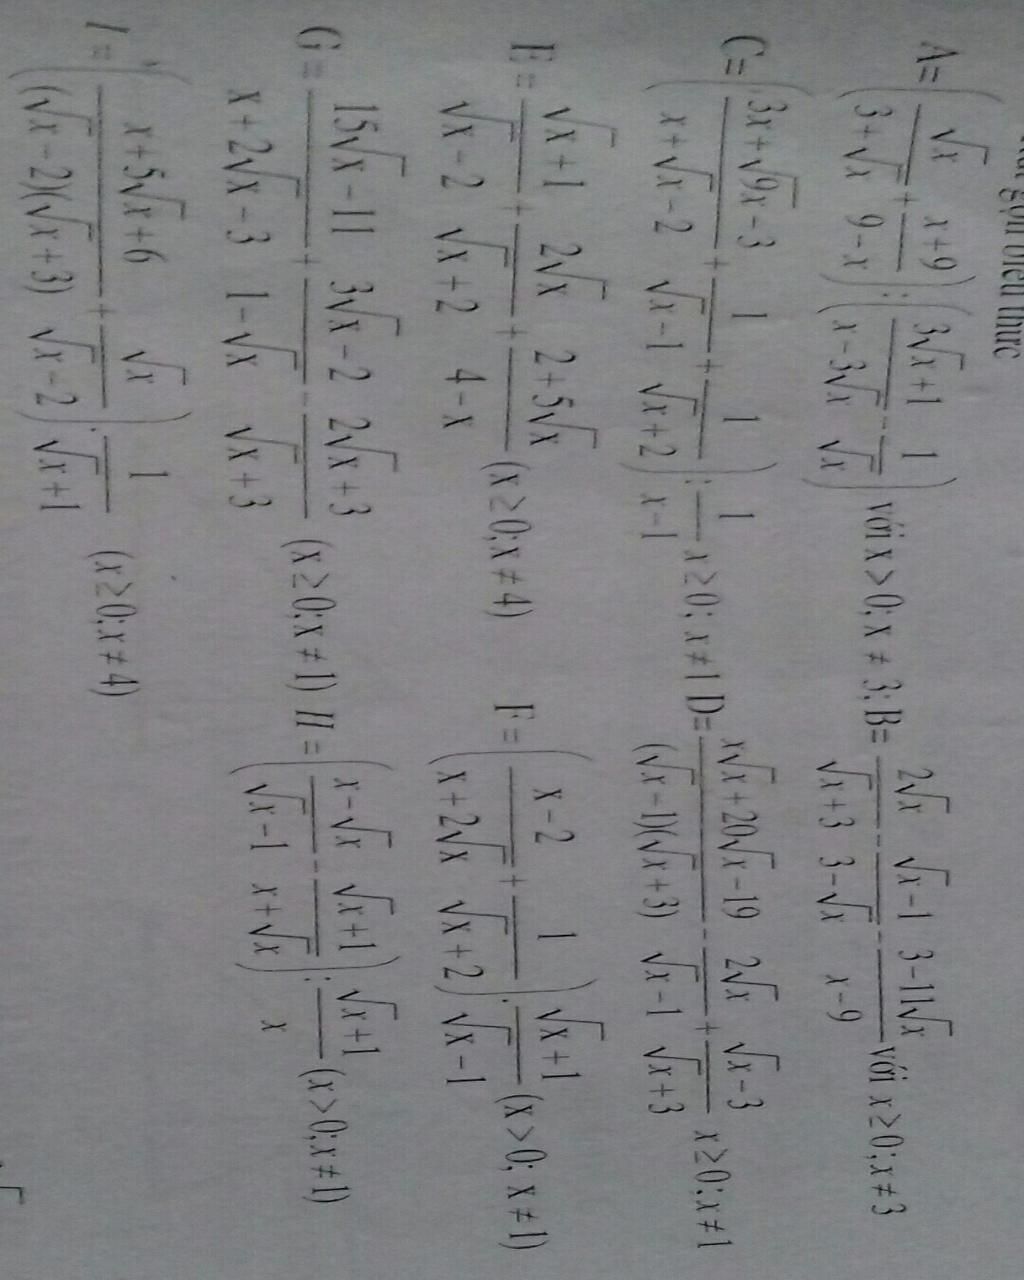 gọn biểu thức
A= ( √x / (3+√x) + (x+9) / (9-x) ) : ( (3√x+1) / (x-3√x) - 1 / √x ) với x > 0; x ≠ 3; B= 2√x / (√x+3) - (√x-1) / (3-√x) - (3-11√x) / (x-9) với x ≥ 0; x ≠ 3
C= ( (3x+√9x-3) / (x+√x-2) + 1 / (√x-1) + 1 / (√x+2) ) : 1 / (x-1) x ≥ 0; x ≠ 1 D= (x√x+20√x-19) / ((√x-1)(√x+3)) - 2√x / (√x-1) + (√x-3) / (√x+3) x ≥ 0; x ≠ 1
E = (√x+1) / (√x-2) + 2√x / (√x+2) + (2+5√x) / (4-x) (x ≥ 0; x ≠ 4) F = ( (x-2) / (x+2√x) + 1 / (√x+2) ) . (√x+1) / (√x-1) (x > 0; x ≠ 1)
G = (15√x-11) / (x+2√x-3) + (3√x-2) / (1-√x) - (2√x+3) / (√x+3) (x ≥ 0; x ≠ 1) H = ( (x-√x) / (√x-1) - (√x+1) / (x+√x) ) : (√x+1) / x (x > 0; x ≠ 1)
I = ( (x+5√x+6) / ((√x-2)(√x+3)) + √x / (√x-2) ) . 1 / (√x+1) (x ≥ 0; x ≠ 4)